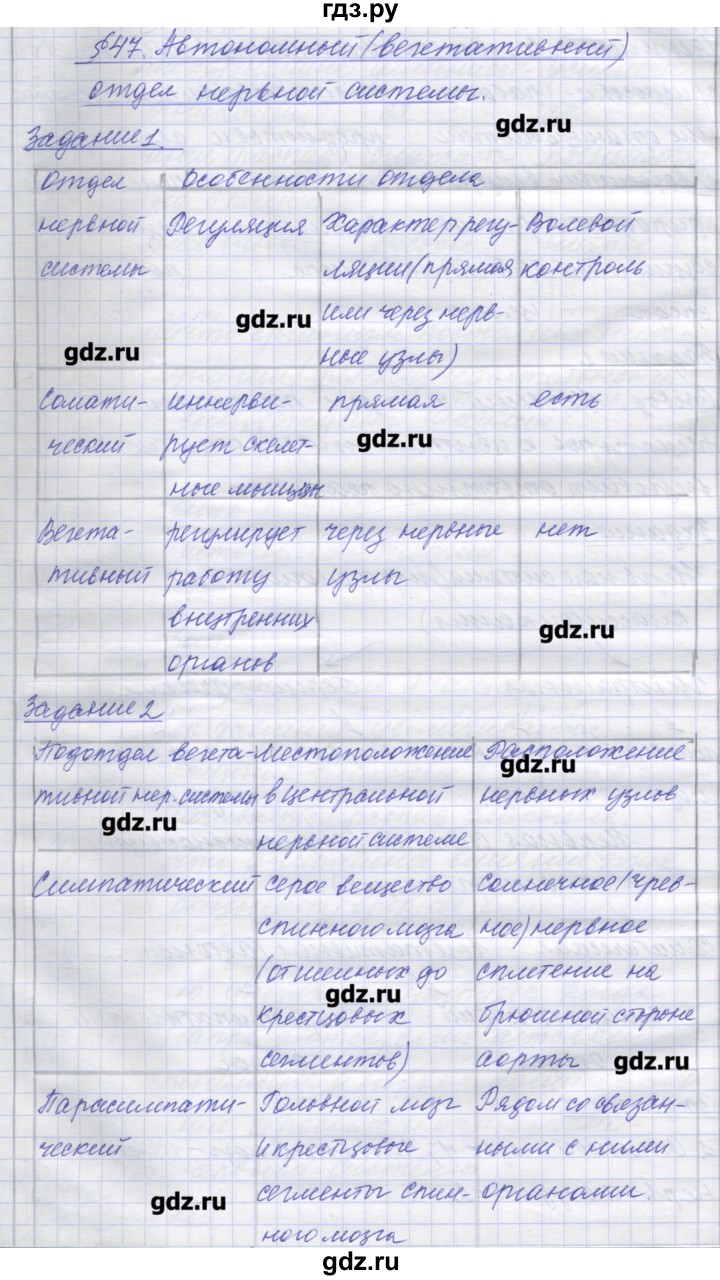 гдз.ру
§47. Автономный (вегетативный)
отдел нервной системы.
gdz.ru
Задание 1.
Отдел нервной системы
Особенности отдела
Регуляция
Характер регу-
ляции (прямая
или через нерв-
ные узлы)
Волевой
контроль
gdz.ru
gdz.ru
Сомати-
ческий
иннерви-
рует скелет-
ные мышцы
прямая
есть
gdz.ru
Вегета-
тивный
регулирует
работу
внутренних
органов
через нервные
узлы
нет
gdz.ru
Задание 2
Подотдел вегета-
тивной нер. системы
Местоположение
в центральной
нервной системе
Расположение
нервных узлов
gdz.ru
gdz.ru
Симпатический
Серое вещество
спинного мозга
(от шейных до
крестцовых
сегментов)
Солнечное (чрев-
ное) нервное
сплетение на
брюшной стороне
аорты
gdz.ru
gdz.ru
Парасимпати-
ческий
Головной мозг
и крестцовые
сегменты спин-
ного мозга
Рядом со связан-
ными с ними
органами.
gdz.ru
gdz.ru